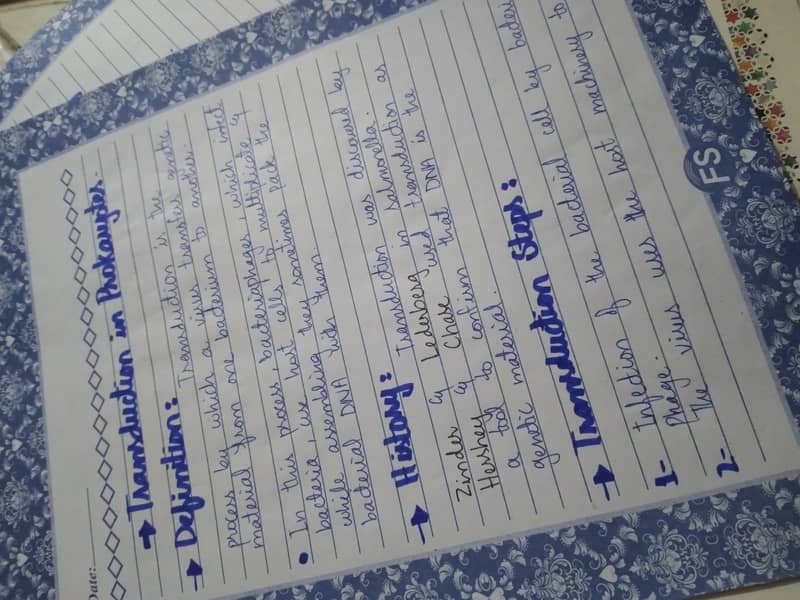 Date:
→ Transduction in Prokaryotes.
→ Definition: Transduction is the
process by which a virus transfers genetic
material from one bacterium to another.
• In this process, bacteriophages, which infect
bacteria, use host cells to multiplicate &
while assembling they sometimes pack the
bacterial DNA with them.
→ History: Transduction was discovered by
Zinder & Lederberg in Salmonella.
Hershey & Chase used transduction as
a tool to confirm that DNA is the
genetic material.
→ Transduction Steps:
1- Infection of the bacterial cell by bacteri
Phage.
2- The virus uses the host machinery to
FS